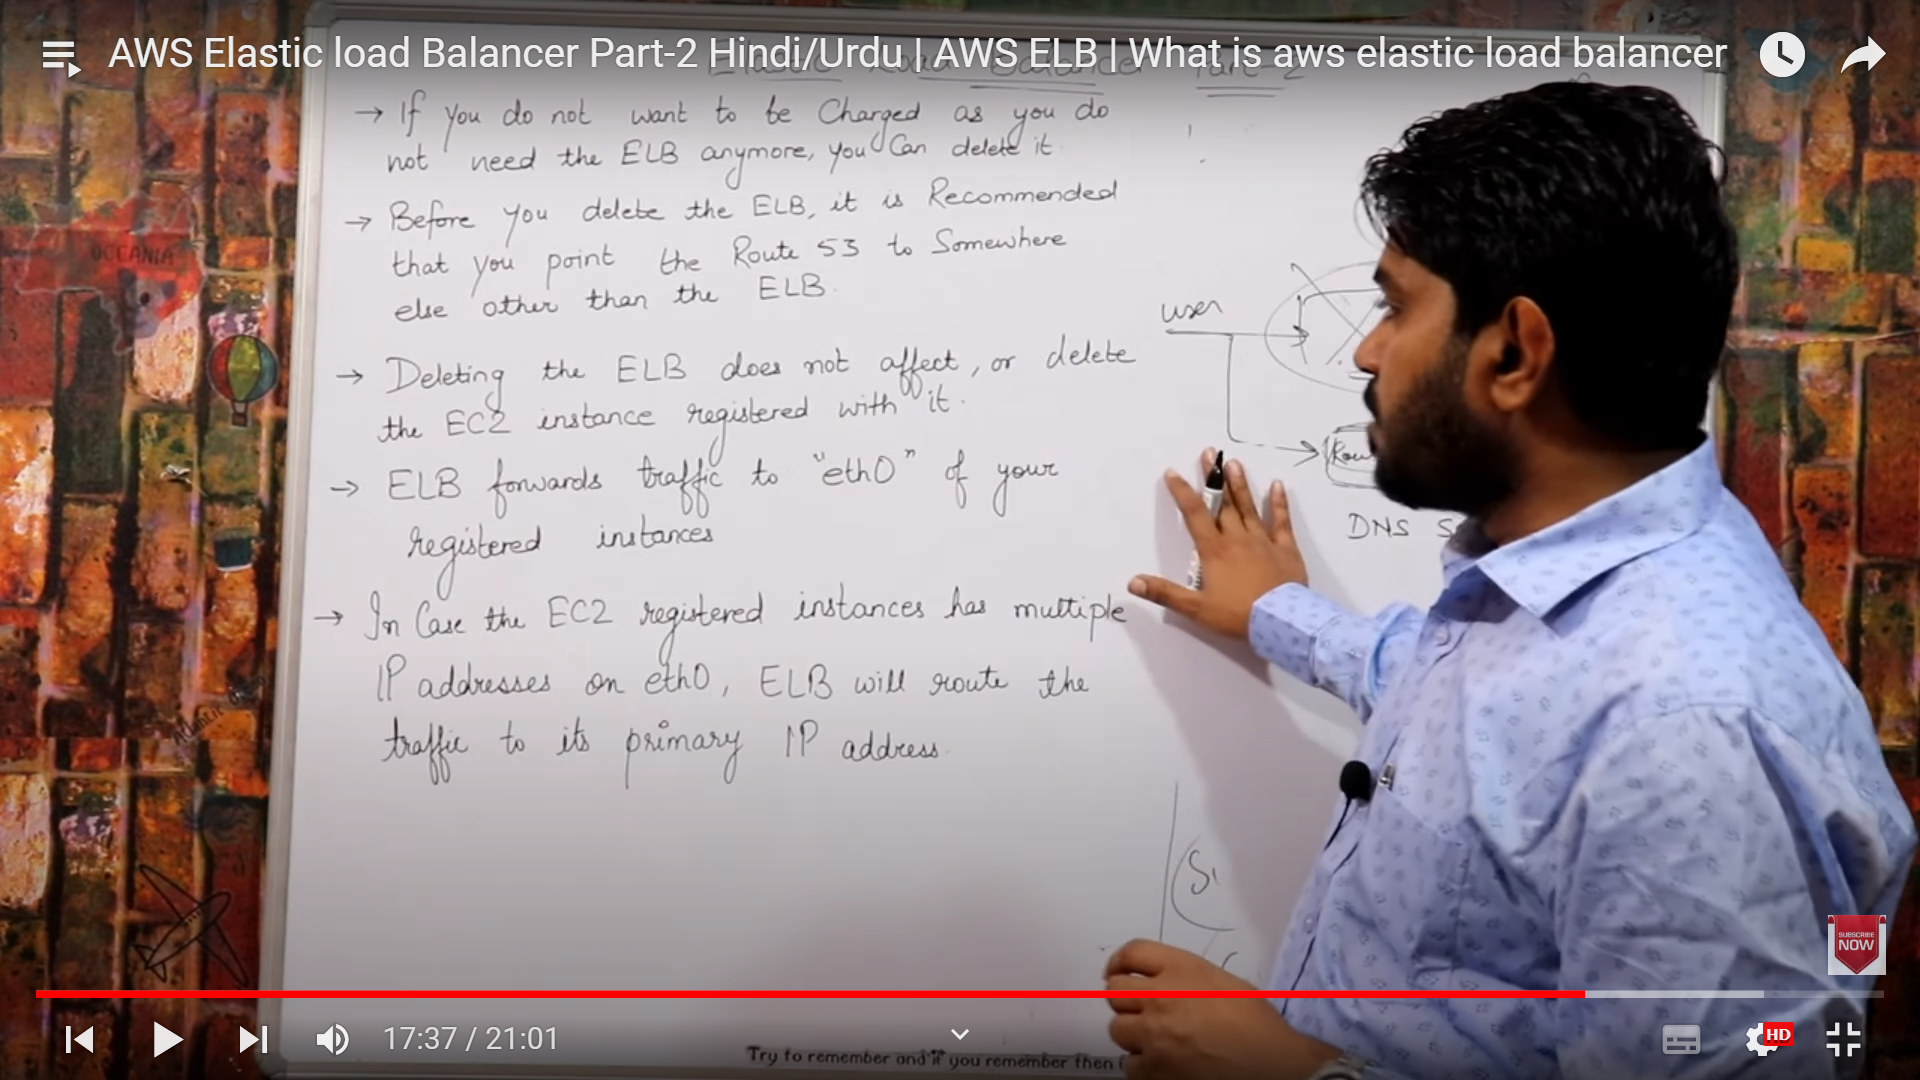 AWS Elastic load Balancer Part-2 Hindi/Urdu | AWS ELB | What is aws elastic load balancer
Elastic Load Balancer Part-2
→ If you do not want to be Charged as you do
not need the ELB anymore, you Can delete it.
→ Before you delete the ELB, it is Recommended
that you point the Route 53 to Somewhere
else other than the ELB.
→ Deleting the ELB does not affect, or delete
the EC2 instance registered with it.
→ ELB forwards traffic to "eth0" of your
registered instances
→ In Case the EC2 registered instances has multiple
IP addresses on eth0, ELB will route the
traffic to its primary IP address.
user
Rou
DNS S
OCEANIA
SUBSCRIBE
NOW
17:37 / 21:01
HD
Try to remember and if you remember then